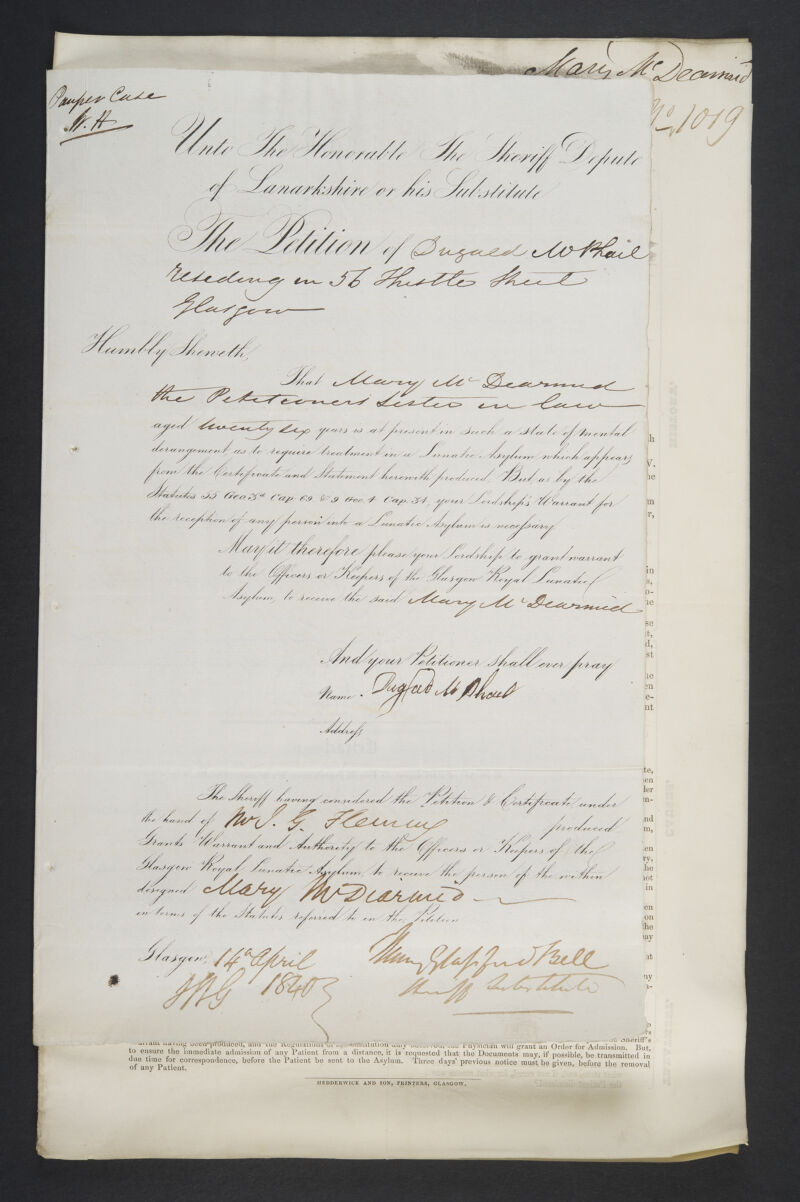 Mary McDearmid
No 1019
Pauper Case
W. H
Unto The Honorable The Sheriff Depute
of Lanarkshire or his Substitute
The Petition of Dugald McPhail
residing in 56 Thistle Street
Glasgow
Humbly Sheweth,
That Mary McDearmid
the Petitioners Sister in law
aged twenty six years is at present in such a state of mental
derangement as to require treatment in a Lunatic Asylum which appears
from the Certificate and Statement herewith produced. But as by the
Statutes 55 Geo. 3d Cap. 69 & 9 Geo. 4 Cap. 34, your Lordships Warrant for
the reception of any person into a Lunatic Asylum is necessary
May it therefore please your Lordship to grant warrant
to the Officers or Keepers of the Glasgow Royal Lunatic
Asylum, to receive the said Mary McDearmid
And your Petitioner shall ever pray
Name. Dugald McPhail
Address
The Sheriff having considered the Petition & Certificate under
the hand of Mr J. G. Fleming produced
Grants Warrant and Authority to the Officers or Keepers of the
Glasgow Royal Lunatic Asylum, to receive the person of the within
designed Mary McDearmid
in terms of the Statutes referred to in the Petition
Glasgow, 14th April
1840
Henry Glassford Bell
Sheriff Substitute
Warrant having been produced, and the Regulations of the Constitution duly observed, the Physician will grant an Order for Admission. But,
to ensure the immediate admission of any Patient from a distance, it is requested that the Documents may, if possible, be transmitted in
due time for correspondence, before the Patient be sent to the Asylum. Three days' previous notice must be given, before the removal
of any Patient.
HEDDERWICK AND SON, PRINTERS, GLASGOW.